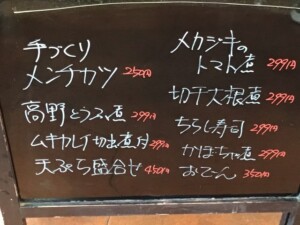 手づくり
メンチカツ 250円
高野とうふ煮 299円
ムキカレイ切出煮付 299円
天ぷら盛合せ 450円
メカジキの
トマト煮 299円
切干大根煮 299円
ちらし寿司 299円
かぼちゃ煮 299円
おでん 350円